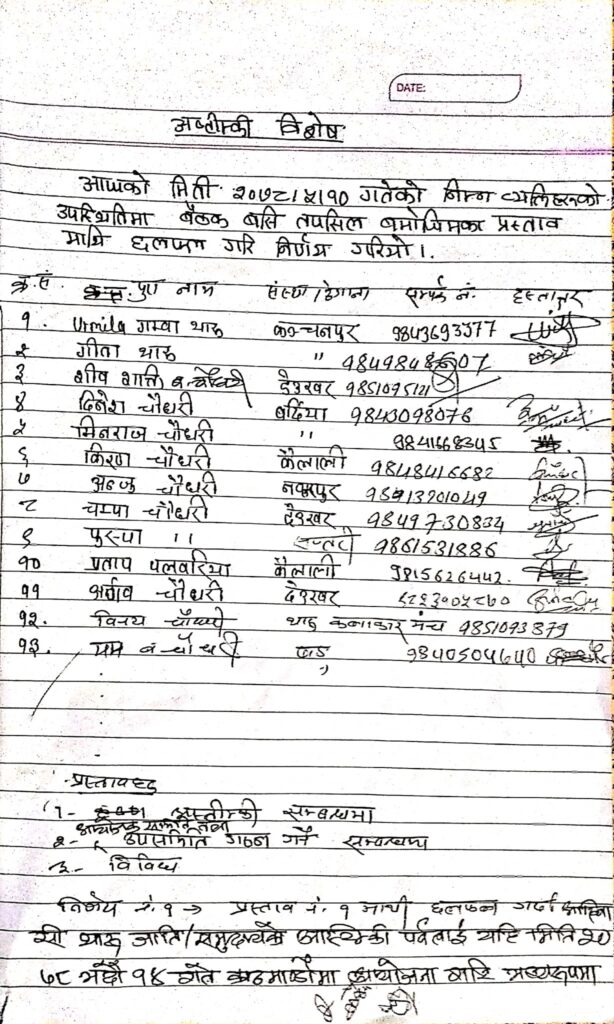 DATE:
अष्टीम्की विशेष
आजको मिती २०७८।५।१० गतेको निम्न व्यक्तिहरुको
उपस्थितिमा बैठक बसि तपसिल बमोजिमका प्रस्ताव
माथि छलफल गरि निर्णय गरियो।
क्र.सं. पुरा नाम संस्था/ठेगाना सम्पर्क नं. हस्ताक्षर
१. Urmila गम्वा थारु कञ्चनपुर 9843693377
२ गीता थारु "
३ चौधरी देउखर
४ दिनेश चौधरी बर्दिया 9843098076
५ मिनराज चौधरी " 9841668345
६ किरण चौधरी कैलाली 9848416682
७ अन्जु चौधरी नवलपुर
८ चम्पा चौधरी देउखर 9849730834
९ पुस्पा " सप्तरी 9861531886
१० प्रताप पलवारिया कैलाली 9815626442.
११ चौधरी देउखर
१२. विनय चौधरी थारु कलाकार मंच 9851093879
१३. चौधरी दाङ 9840504640
प्रस्तावहरु
१- अष्टीम्की सम्बन्धमा
२- उपसमिति गठन गर्ने सम्बन्धमा
३- विविध
निर्णय नं. १ → प्रस्ताव नं. १ माथी छलफल गर्दा
थारु जाति/समुदायको अष्टिम्की पर्वलाई यहि मिति २०
७८ भदौ १४ गते काठमाडौंमा आयोजना गरि